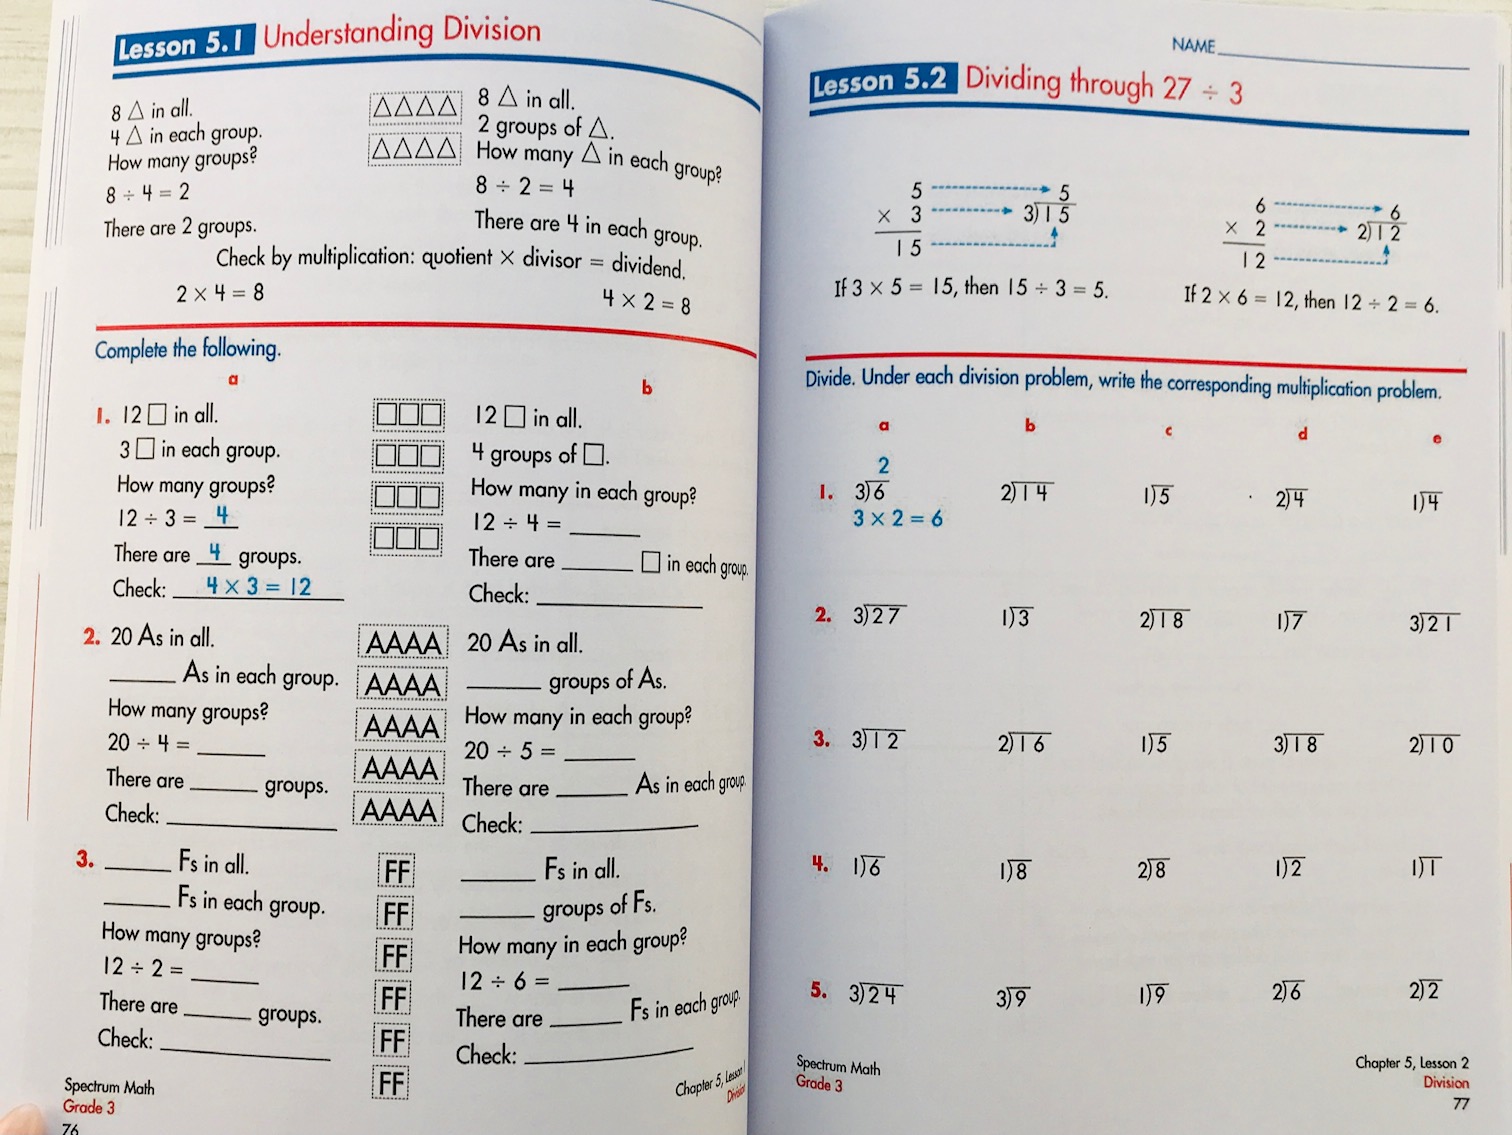 Lesson 5.1 Understanding Division
8 △ in all.
4 △ in each group.
How many groups?
8 ÷ 4 = 2
There are 2 groups.
△△△△
△△△△
8 △ in all.
2 groups of △.
How many △ in each group?
8 ÷ 2 = 4
There are 4 in each group.
Check by multiplication: quotient × divisor = dividend.
2 × 4 = 8
4 × 2 = 8
Complete the following.
a
b
1. 12 □ in all.
3 □ in each group.
How many groups?
12 ÷ 3 = 4
There are 4 groups.
Check: 4 × 3 = 12
□□□
□□□
□□□
□□□
12 □ in all.
4 groups of □.
How many in each group?
12 ÷ 4 = ____
There are ____ □ in each group.
Check: ____
2. 20 As in all.
____ As in each group.
How many groups?
20 ÷ 4 = ____
There are ____ groups.
Check: ____
AAAA
AAAA
AAAA
AAAA
AAAA
20 As in all.
____ groups of As.
How many in each group?
20 ÷ 5 = ____
There are ____ As in each group.
Check: ____
3. ____ Fs in all.
____ Fs in each group.
How many groups?
12 ÷ 2 = ____
There are ____ groups.
Check: ____
FF
FF
FF
FF
FF
FF
____ Fs in all.
____ groups of Fs.
How many in each group?
12 ÷ 6 = ____
There are ____ Fs in each group.
Check: ____
Spectrum Math
Grade 3
76
Chapter 5, Lesson
Division
NAME
Lesson 5.2 Dividing through 27 ÷ 3
5
× 3
15
5
3)15
6
× 2
12
6
2)12
If 3 × 5 = 15, then 15 ÷ 3 = 5.
If 2 × 6 = 12, then 12 ÷ 2 = 6.
Divide. Under each division problem, write the corresponding multiplication problem.
a b c d e
2
1. 3)6 2)14 1)5 2)4 1)4
3 × 2 = 6
2. 3)27 1)3 2)18 1)7 3)21
3. 3)12 2)16 1)5 3)18 2)10
4. 1)6 1)8 2)8 1)2 1)1
5. 3)24 3)9 1)9 2)6 2)2
Spectrum Math
Grade 3
Chapter 5, Lesson 2
Division
77